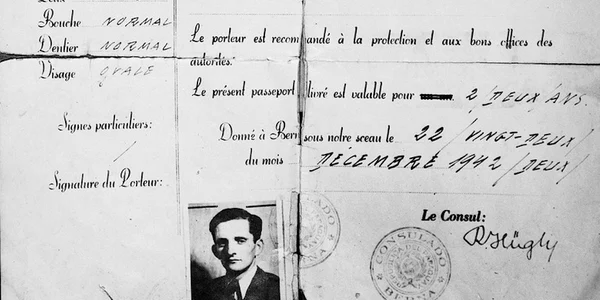 Bouche NORMAL
Dentier NORMAL
Visage OVALE
Signes particuliers:
/
Signature du Porteur:
Le porteur est recommandé à la protection et aux bons offices des
autorités.
Le présent passeport livré est valable pour 2 DEUX ANS.
Donné à Bern sous notre sceau le 22 / VINGT-DEUX /
du mois DÉCEMBRE 1942 / DEUX /
Le Consul:
R. Hügly
CONSULADO
BERNA